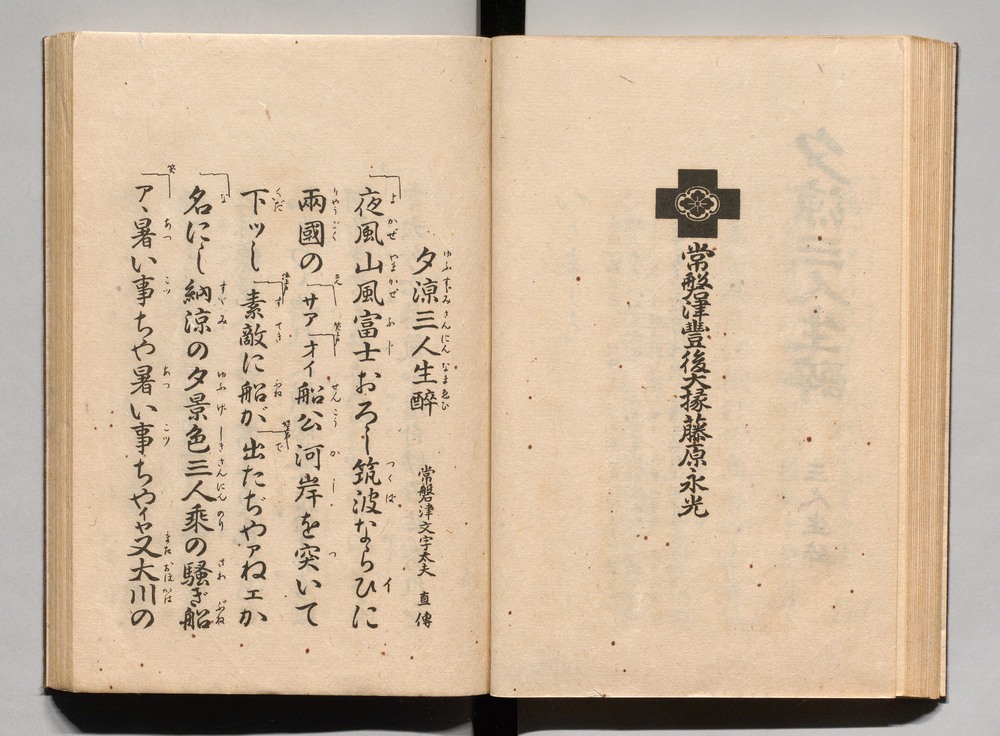 常磐津豊後大掾藤原永光
夕涼三人生醉
常磐津文字太夫 直傳
夜風山風富士おろし筑波ならひに
兩國のサアオイ船公河岸を突いて
下ッし素敵に船が出たぢやァねェか
名にし納涼の夕景色三人乘の騷ぎ船
アヽ暑い事ちや暑い事ちやイヤ又大川の